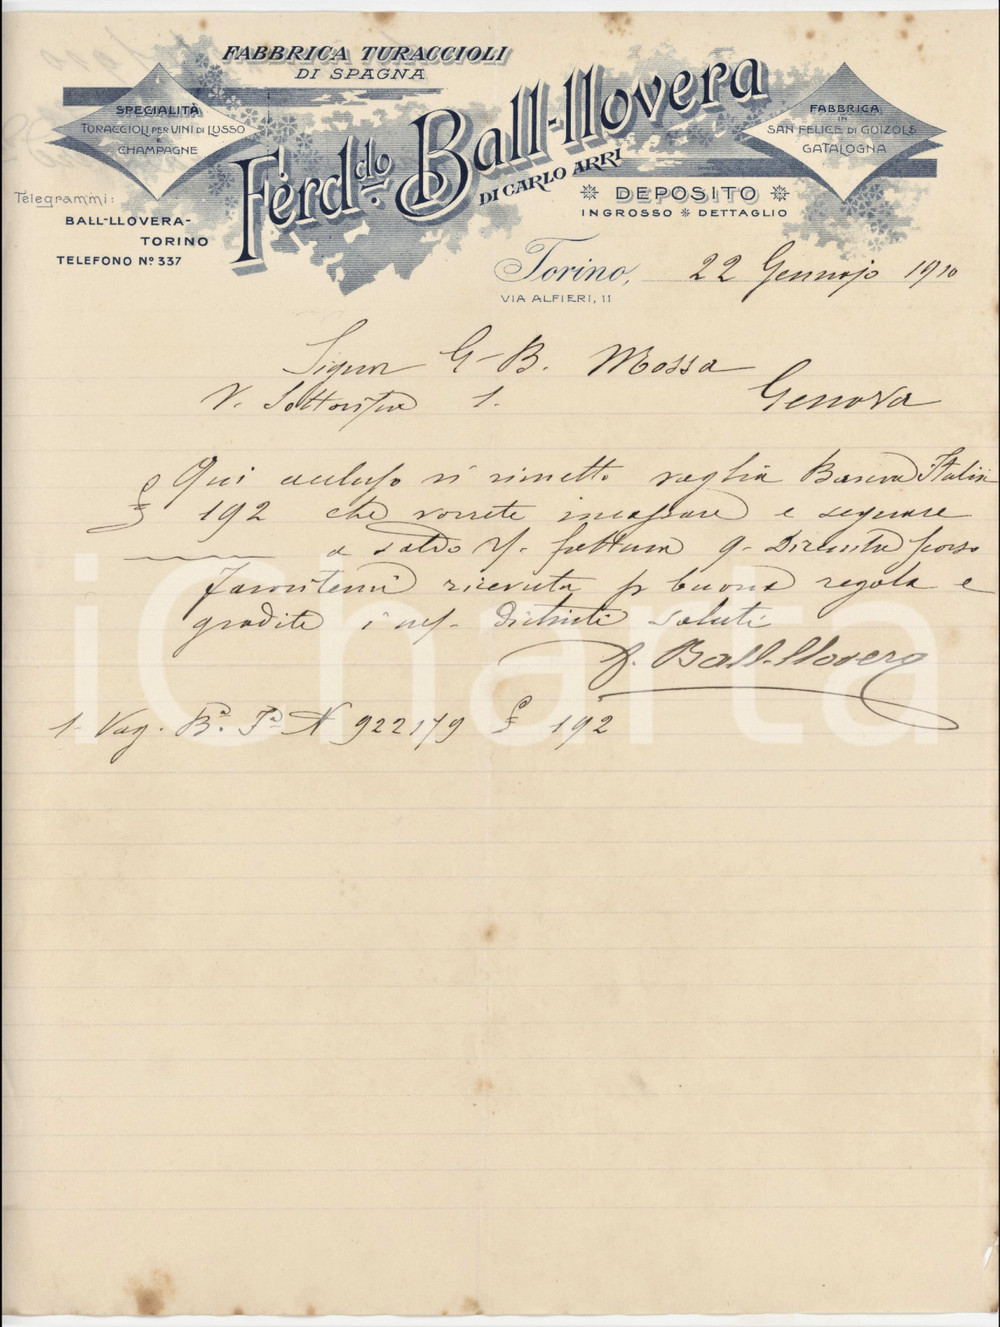 FABBRICA TURACCIOLI
DI SPAGNA
SPECIALITÀ
TORACCIOLI PER VINI DI LUSSO
E
CHAMPAGNE
Ferd.do Ball-llovera
DI CARLO ARRI
FABBRICA
IN
SAN FELICE DI GOIZOLS
GATALOGNA
DEPOSITO
INGROSSO * DETTAGLIO
Telegrammi:
BALL-LLOVERA-
TORINO
TELEFONO Nº 337
Torino, 22 Gennajo 1910
VIA ALFIERI, 11
Signor G. B. Mossa
V. 1. Genova
Qui accluso vi rimetto vaglia Banca Italia
£ 192 che vorrete incassare e segnare
a saldo fattura 9. Dicembre scorso
Favoritemi ricevuta p buona regola e
gradite i distinti saluti
F. Ball-llovera
1. Vag. Bª. Iª N 922179 £ 192
iCharta